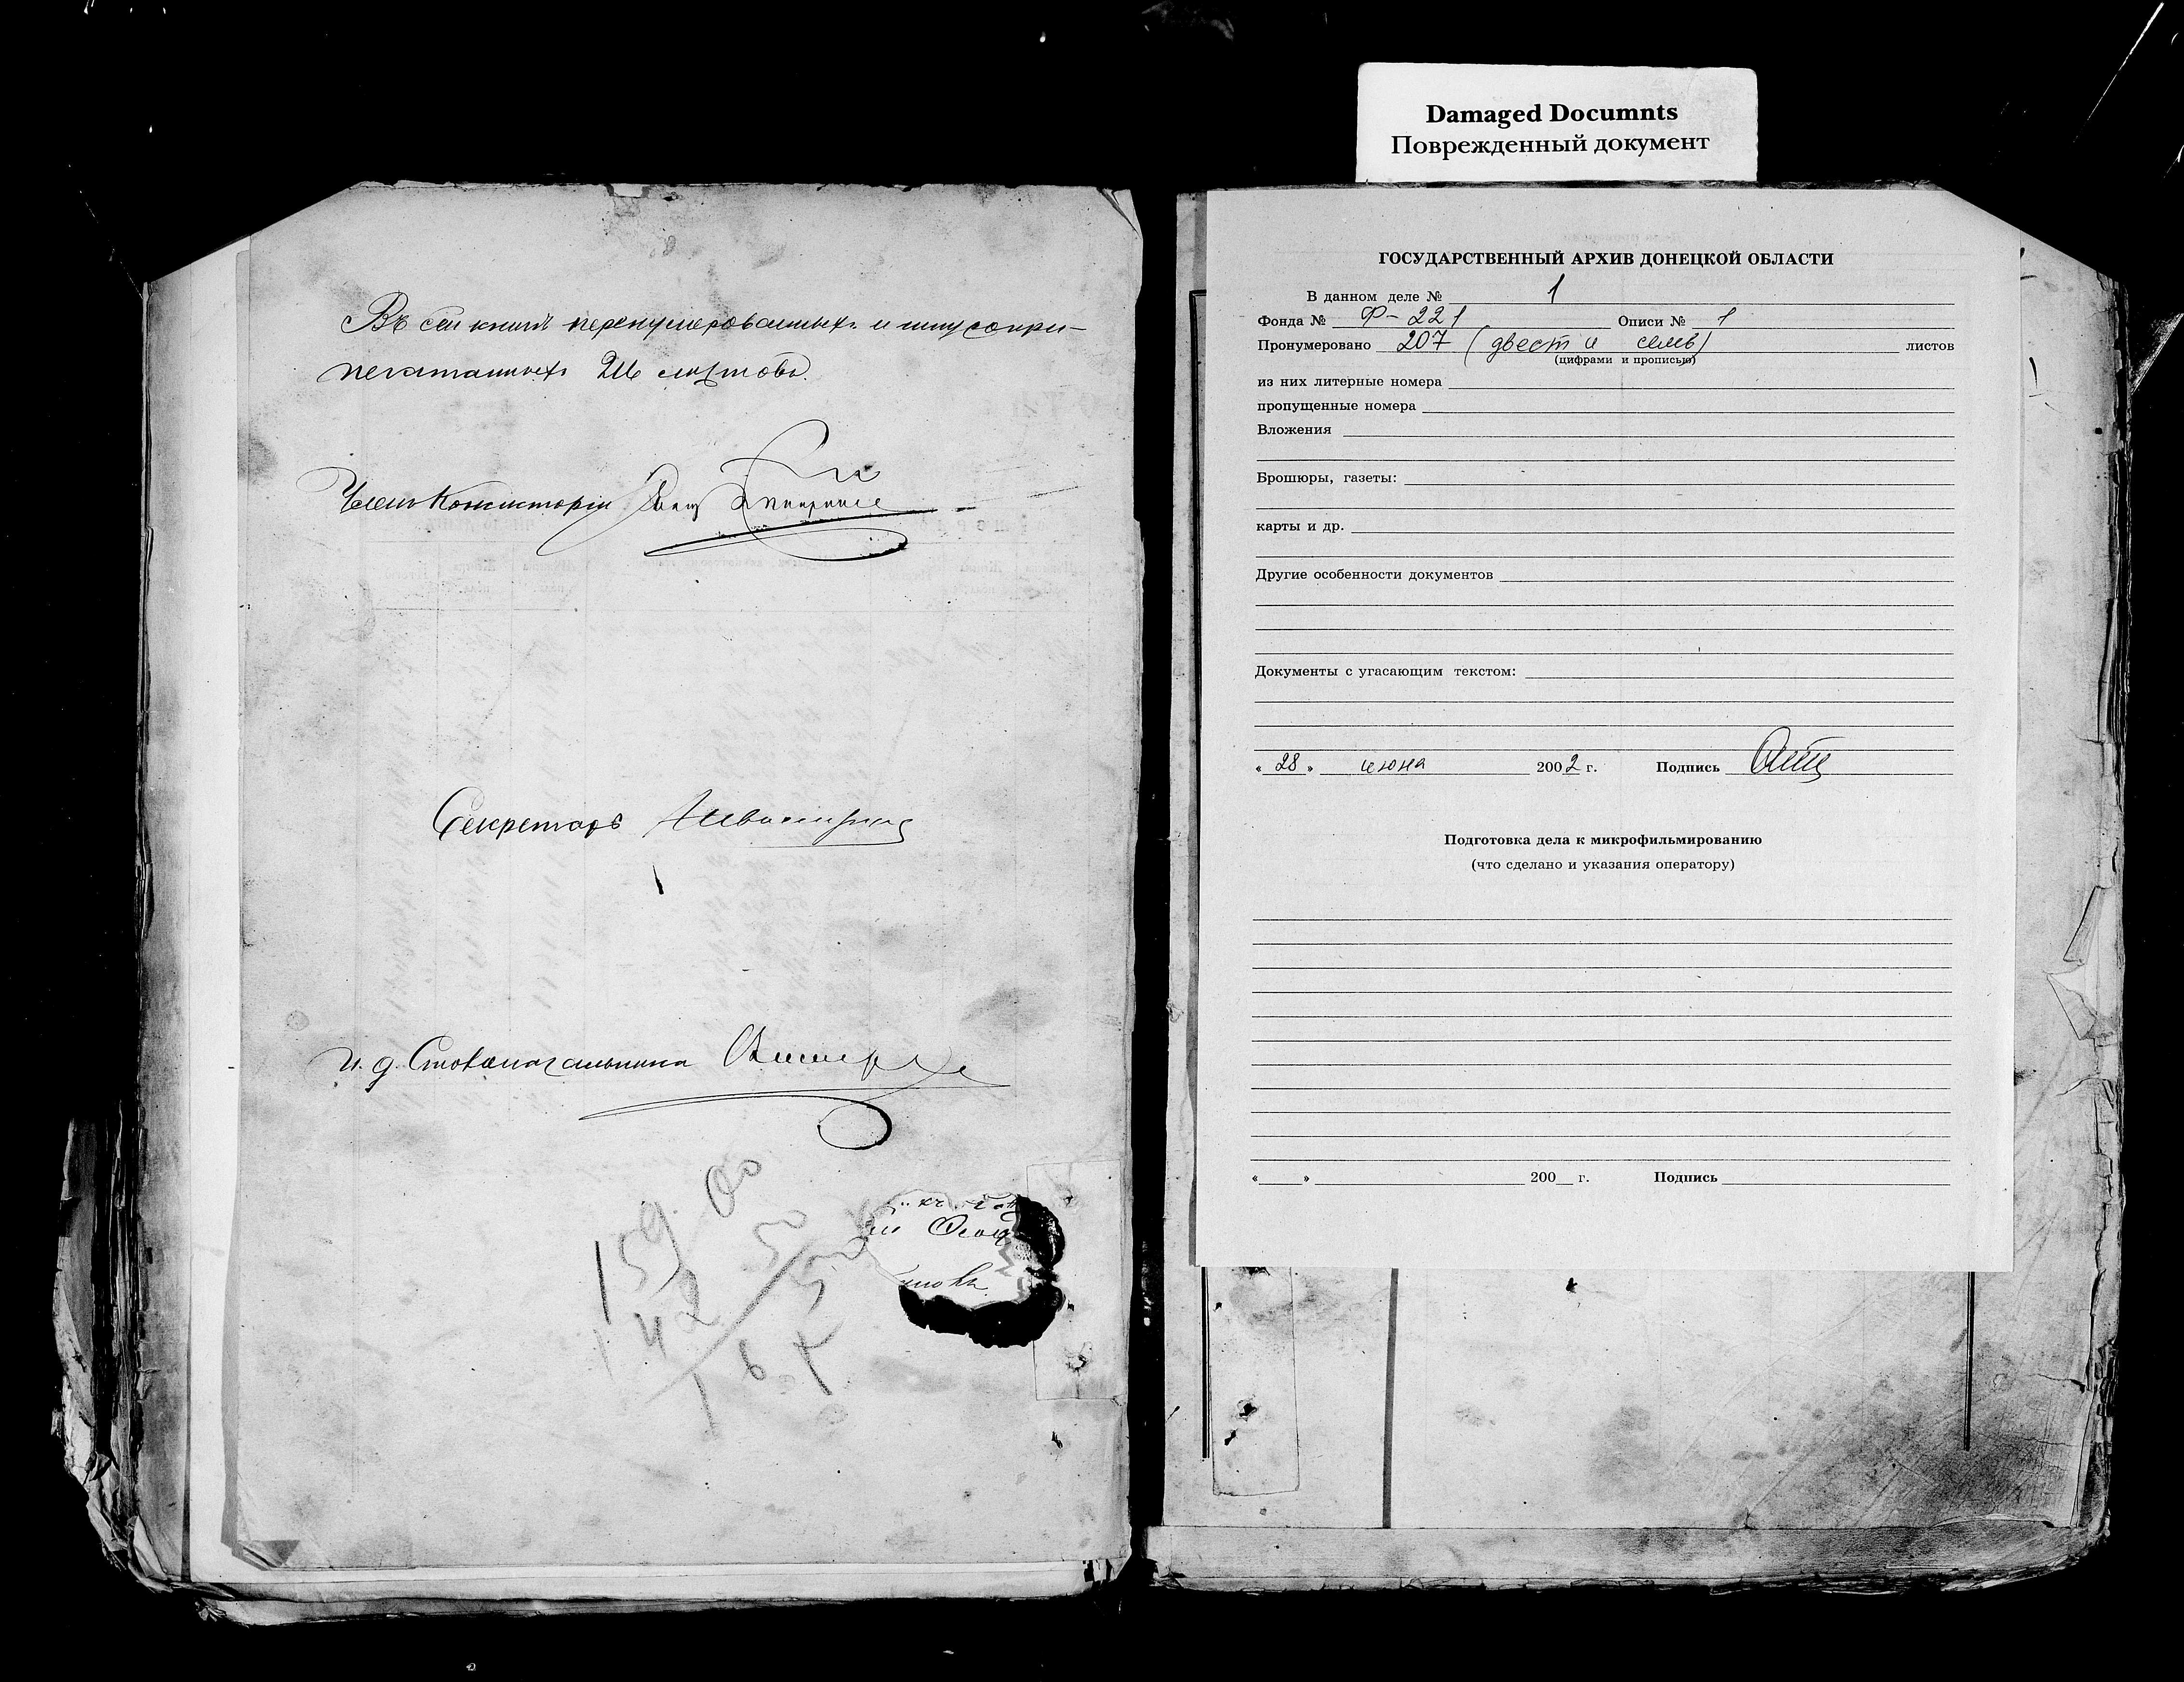 Damaged Documnts
Поврежденный документ
Въ сей книгѣ перенумерованныхъ и шнуроприпе-
чатанныхъ листовъ.
Членъ Консисторіи
Секретарь
И. д. Столоначальника
159
142
ГОСУДАРСТВЕННЫЙ АРХИВ ДОНЕЦКОЙ ОБЛАСТИ
В данном деле № 1
Фонда № Ф-221 Описи № 1
Пронумеровано 207 (двести семь) листов
(цифрами и прописью)
из них литерные номера
пропущенные номера
Вложения
Брошюры, газеты:
карты и др.
Другие особенности документов
Документы с угасающим текстом:
« 28 » июня 2002 г. Подпись
Подготовка дела к микрофильмированию
(что сделано и указания оператору)
« » 200 г. Подпись